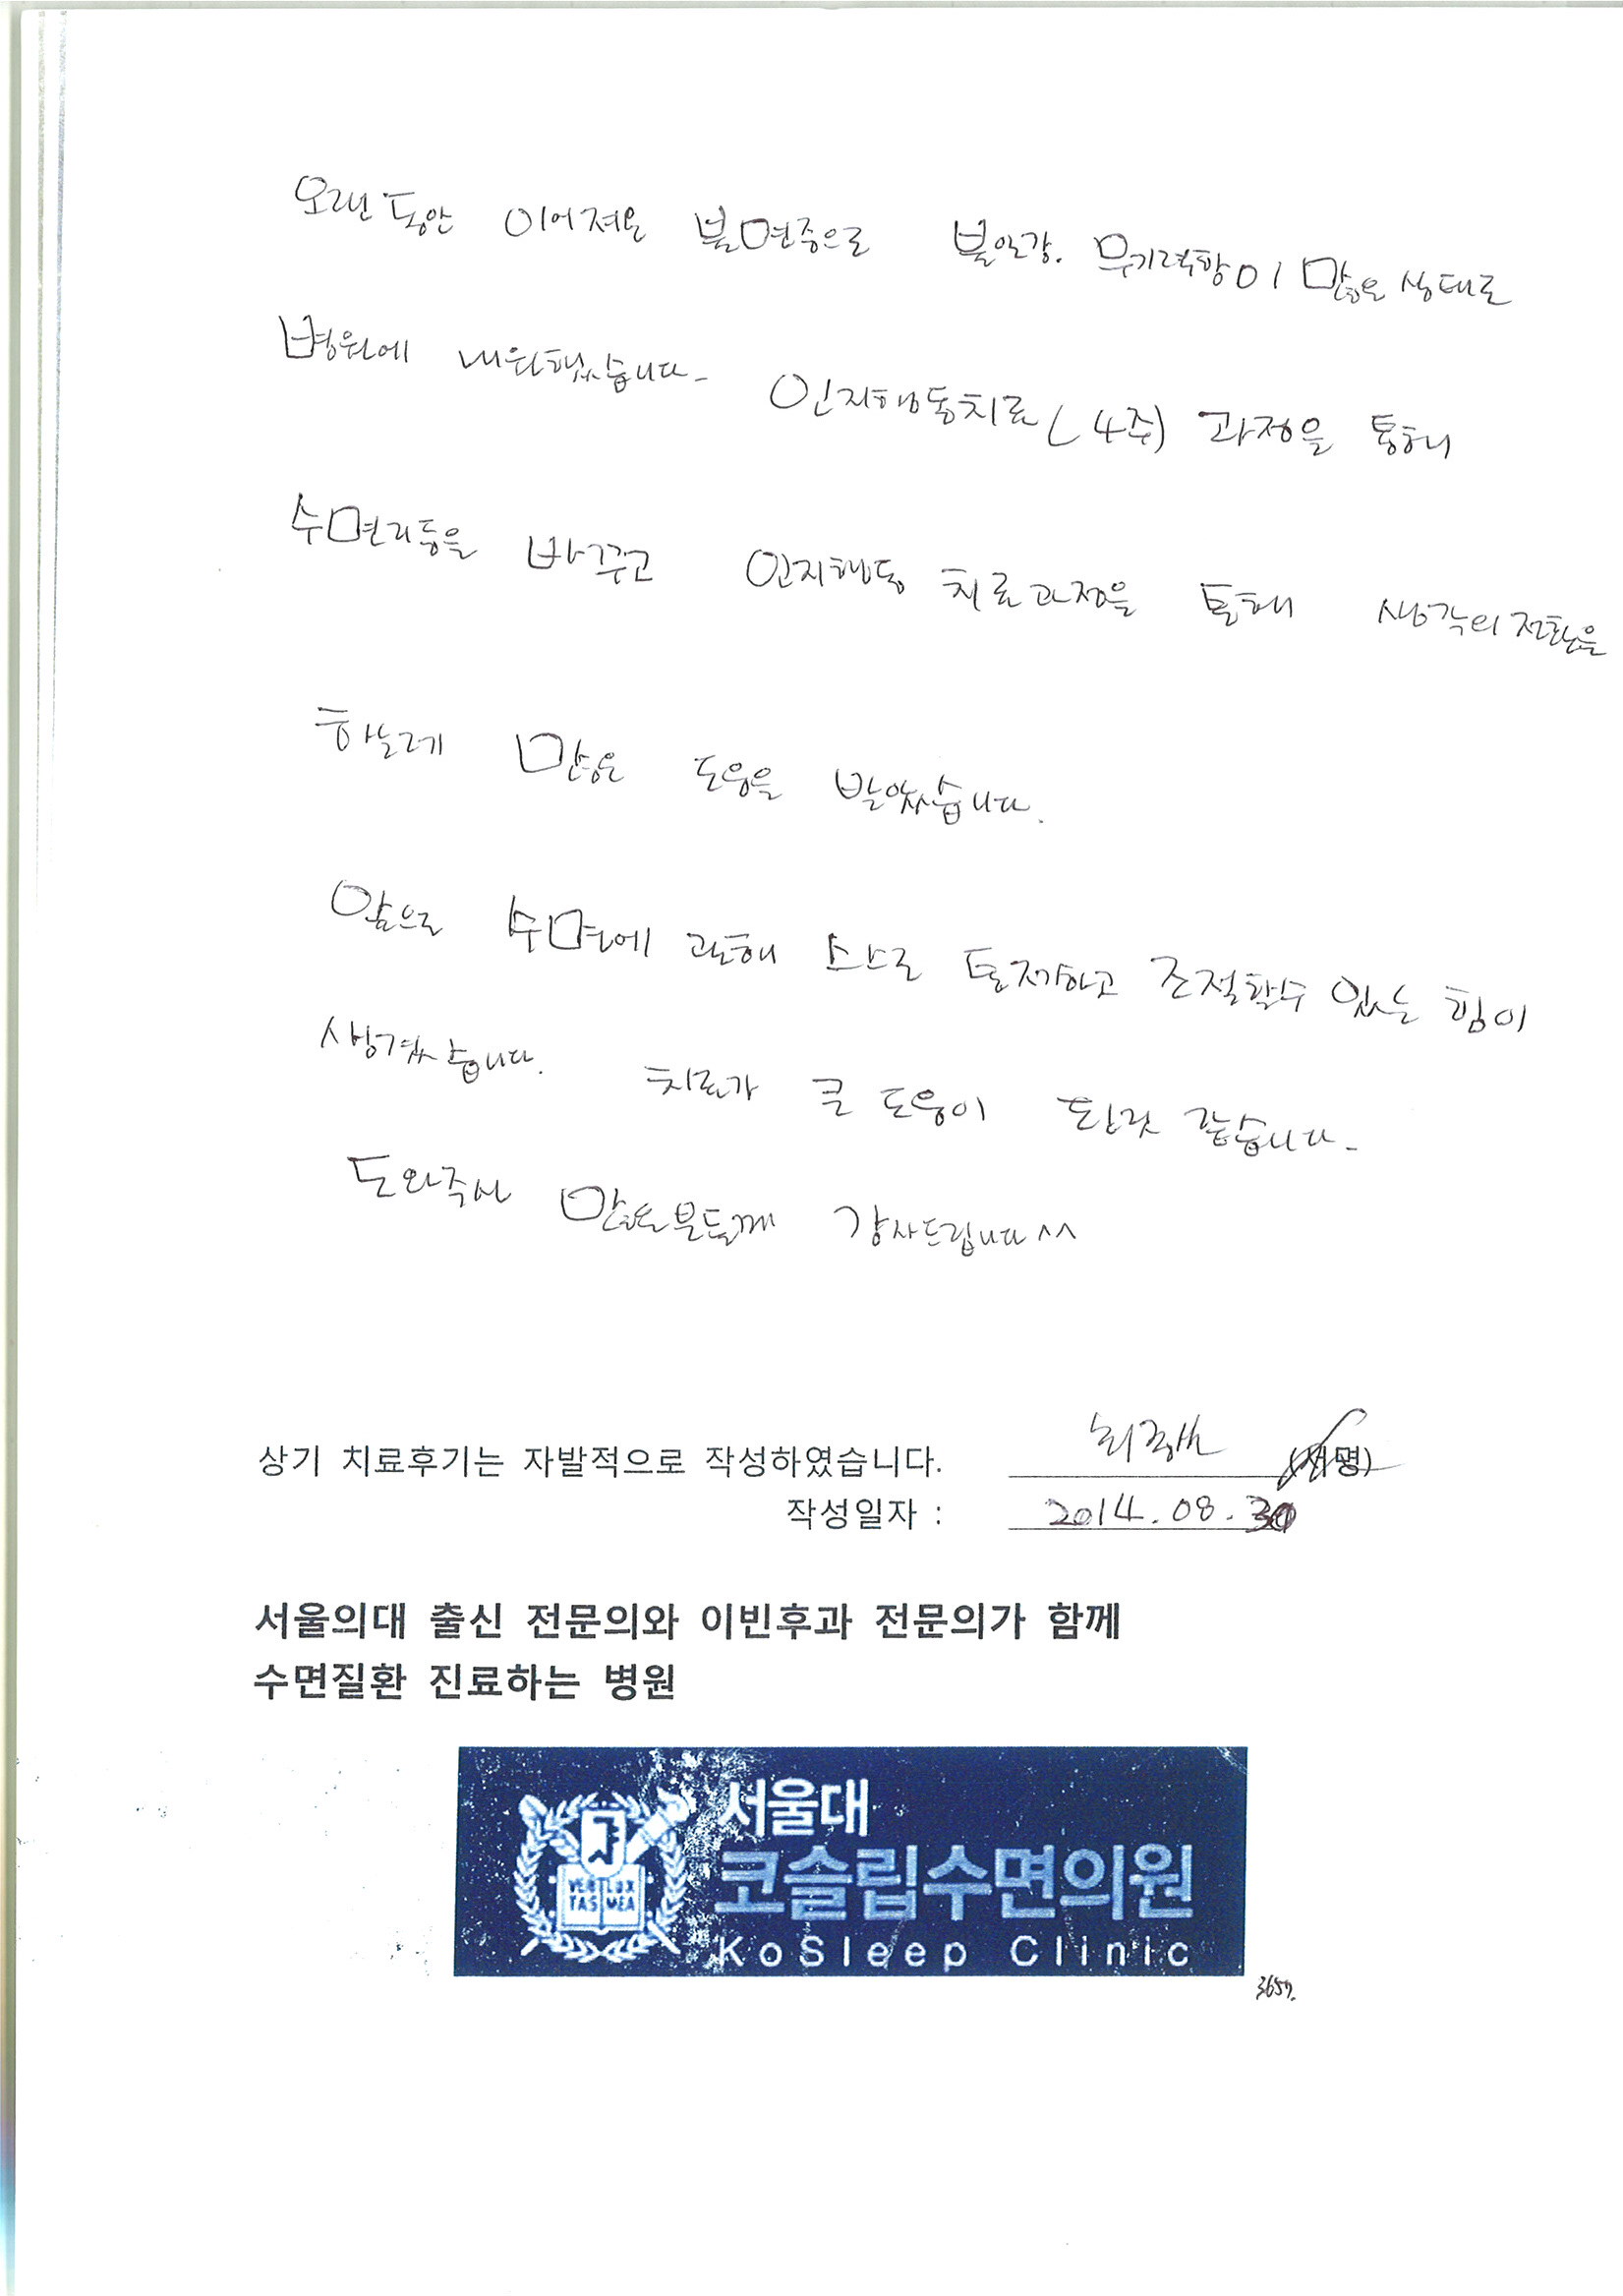 오랜동안 이어져온 불면증으로 불안감. 무기력함이 많은 상태로
병원에 내원했습니다. 인지행동치료(4주) 과정을 통해
수면리듬을 바꾸고 인지행동 치료과정을 통해 생각의 전환을
하는데 많은 도움을 받았습니다.
앞으로 수면에 관해 스스로 통제하고 조절할수 있는 힘이
생겼습니다. 치료가 큰 도움이 된것 같습니다.
도와주신 많은분들께 감사드립니다 ^^
상기 치료후기는 자발적으로 작성하였습니다. (서명)
작성일자 : 2014.08.30
서울의대 출신 전문의와 이빈후과 전문의가 함께
수면질환 진료하는 병원
서울대
VERI LUX
TAS MEA
코슬립수면의원
KoSleep Clinic
3657.